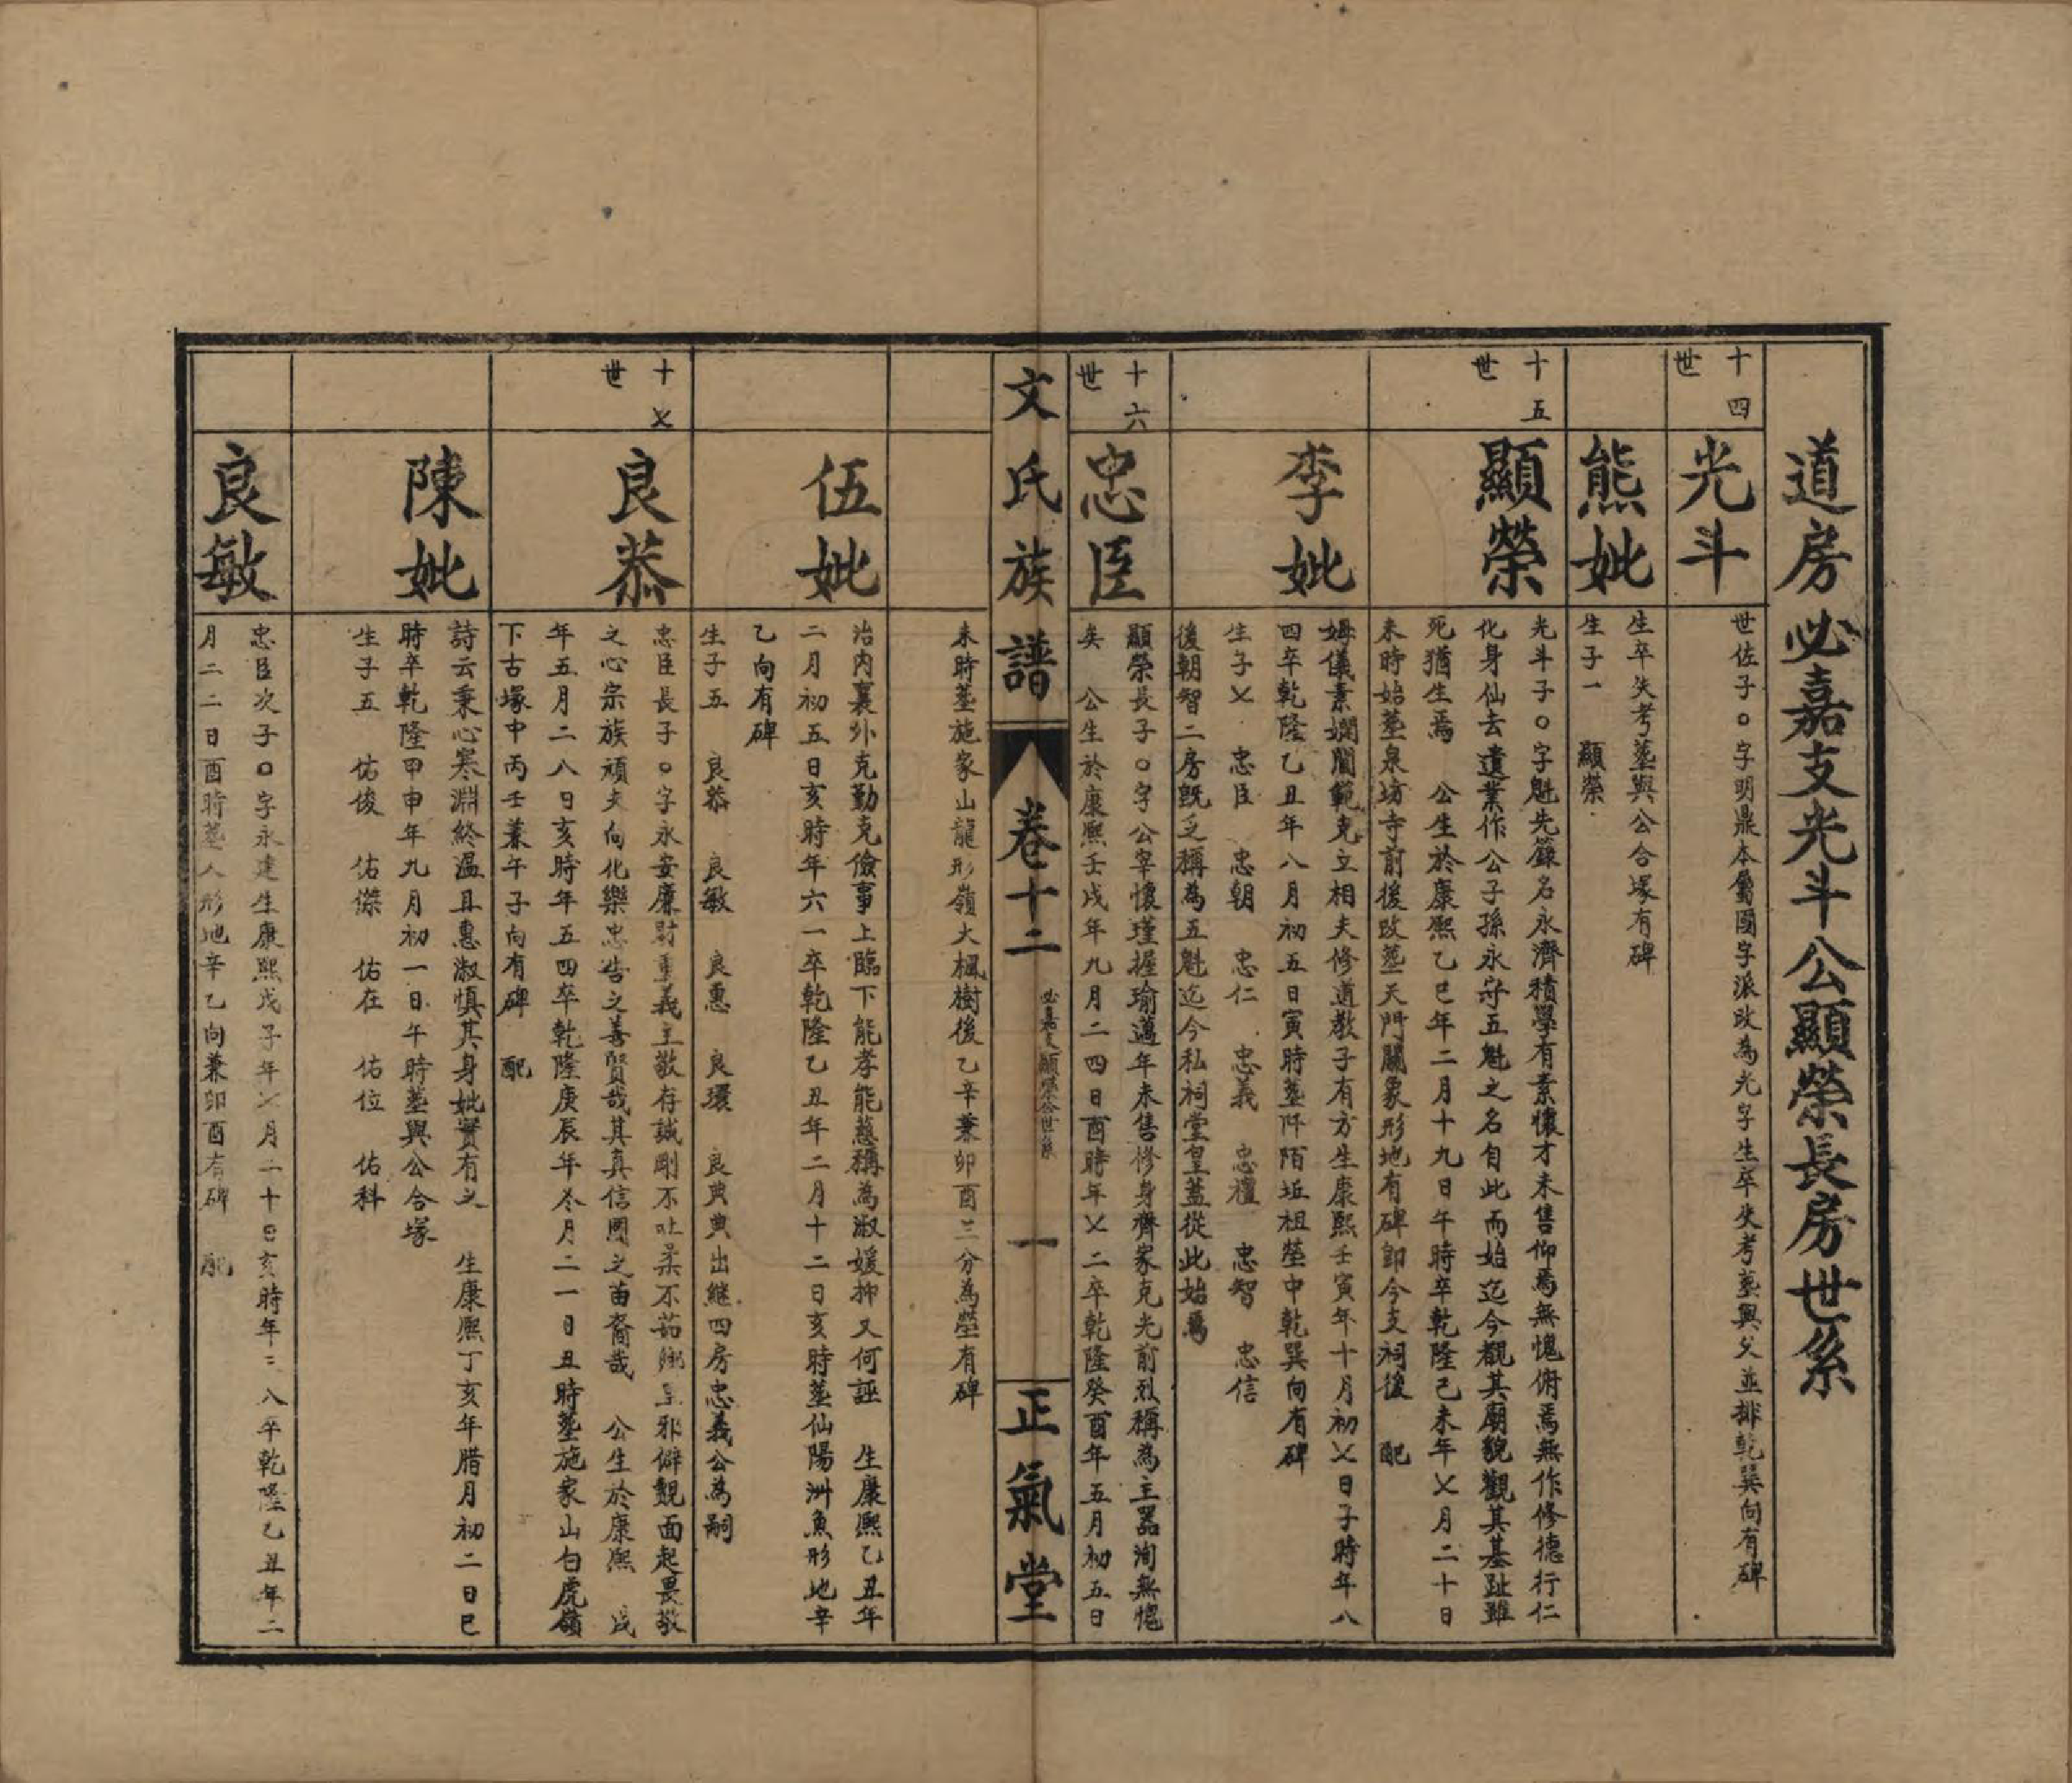 道房必嘉支光斗公顯榮長房世系
十四世
光斗
世佐子〇字明鼎本屬國字派改為光字生卒失考塟與父並排乾巽向有碑
熊妣
生卒失考塟與公合塚有碑
生子一 顯榮
十五世
顯榮
光斗子〇字魁先籙名永濟積學有素懷才未售仰焉無愧俯焉無怍修德行仁
化身仙去遺業作公子孫永守五魁之名自此而始迄今覩其廟貌觀其基趾雖
死猶生焉 公生於康熙乙巳年二月十九日午時卒乾隆己未年乂月二十日
未時始塟泉坊寺前後改塟天門關象形地有碑卽今支祠後 配
李妣
姆儀素嫻閫範克立相夫修道教子有方生康熙壬寅年十月初乂日子時年八
四卒乾隆乙丑年八月初五日寅時塟阡陌坵祖塋中乾巽向有碑
生子乂 忠臣 忠朝 忠仁 忠義 忠禮 忠智 忠信
後朝智二房旣乏稱為五魁迄今私祠堂皇蓋從此始焉
十六世
忠臣
顯榮長子〇字公宰懷瑾握瑜邁年未售修身齊家克光前烈稱為主器洵無愧
矣 公生於康熙壬戌年九月二四日酉時年乂二卒乾隆癸酉年五月初五日
文氏族譜 卷十二 必嘉支顯榮公世系 一 正氣堂
未時塟施家山龍形嶺大楓樹後乙辛兼卯酉三分為塋有碑
伍妣
治內襄外克勤克儉事上臨下能孝能慈稱為淑媛抑又何誣 生康熙乙丑年
二月初五日亥時年六一卒乾隆乙丑年二月十二日亥時塟仙陽洲魚形地辛
乙向有碑
生子五 良恭 良敏 良惠 良環 良典典出繼四房忠義公為嗣
十乂世
良恭
忠臣長子〇字永安廉財重義主敬存誠剛不吐柔不茹鄉里邪僻覩面起畏敬
之心宗族頑夫向化樂忠告之善賢哉其真信國之苗裔哉 公生於康熙 戌
年五月二八日亥時年五四卒乾隆庚辰年冬月二一日丑時塟施家山白虎嶺
下古塚中丙壬兼午子向有碑 配
陳妣
詩云秉心寒淵終溫且惠淑慎其身妣實有之 生康熙丁亥年腊月初二日巳
時卒乾隆甲申年九月初一日午時塟與公合塚
生子五 佑俊 佑傑 佑在 佑位 佑科
良敏
忠臣次子〇字永建生康熙戊子年乂月二十日亥時年三八卒乾隆乙丑年二
月二二日酉時塟人形地辛乙向兼卯酉有碑 配